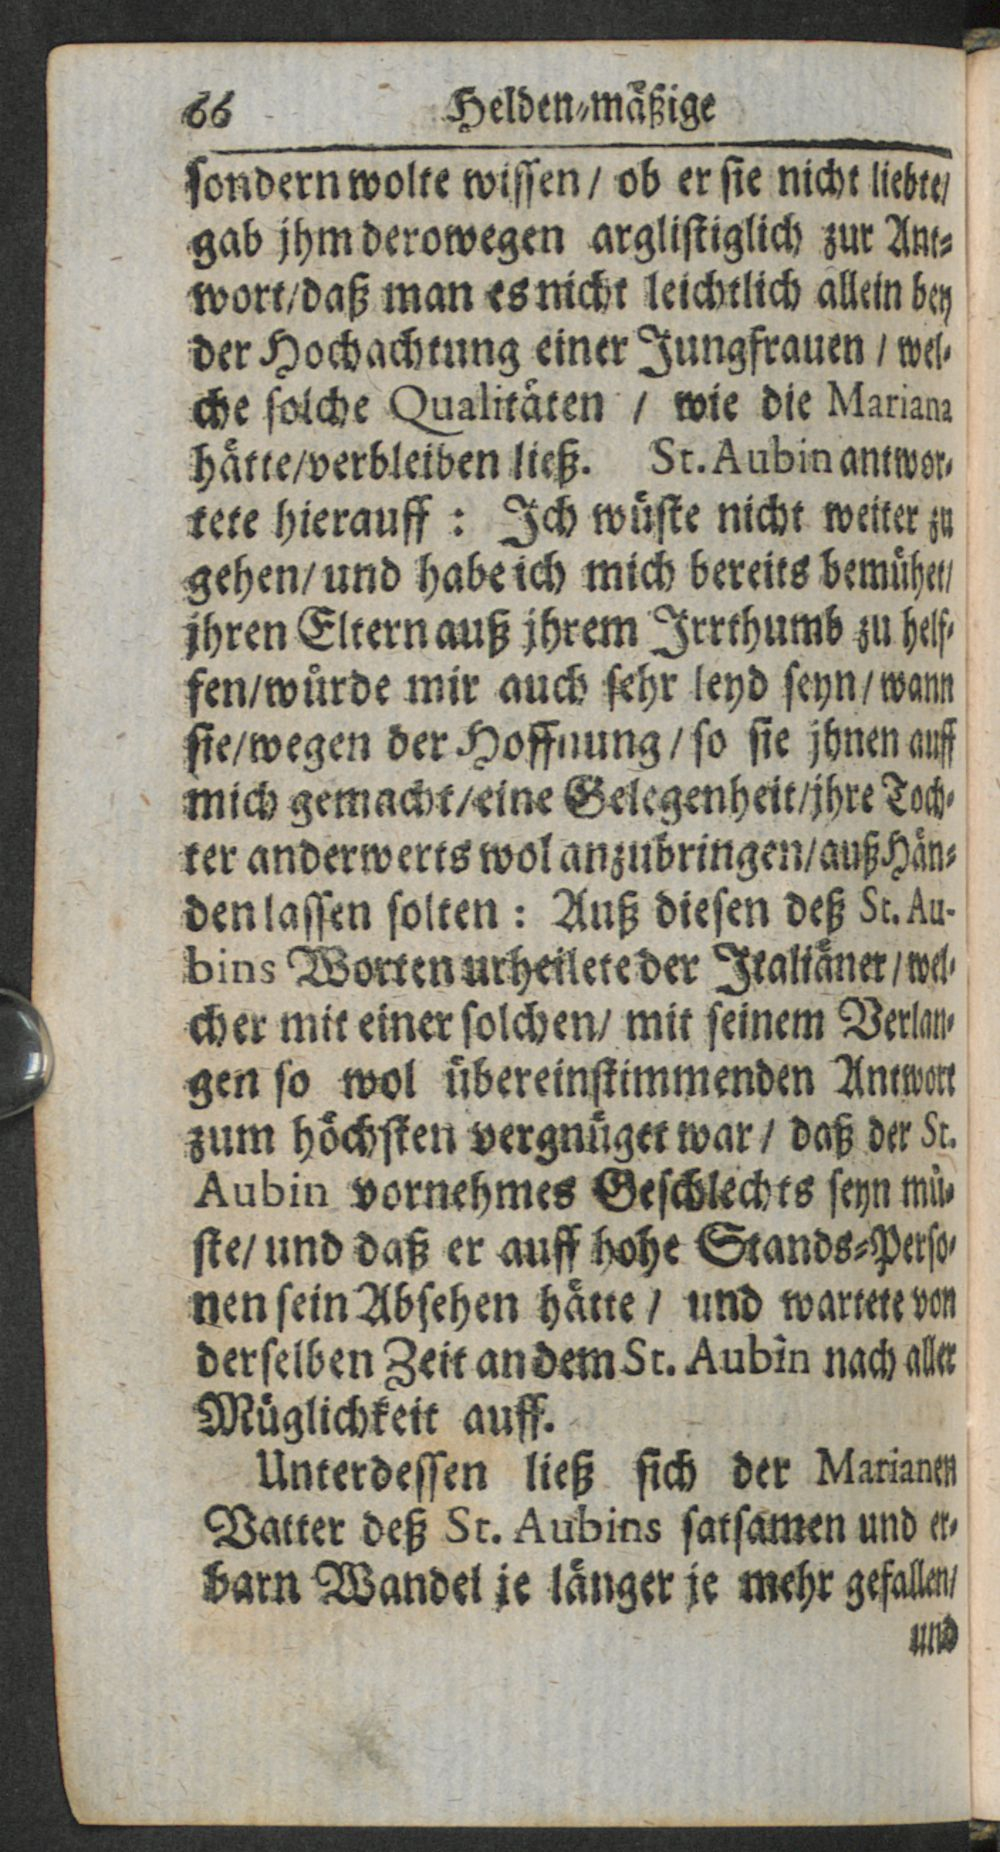 66 Helden-mäßige
sondern wolte wissen / ob er sie nicht liebte/
gab jhm derowegen arglistiglich zur Ant-
wort/daß man es nicht leichtlich allein bey
der Hochachtung einer Jungfrauen / wel-
che solche Qualitäten / wie die Mariana
hätte/verbleiben ließ. St. Aubin antwor-
tete hierauff : Ich wüste nicht weiter zu
gehen/ und habe ich mich bereits bemühet/
jhren Eltern auß jhrem Irrthumb zu helf-
fen/würde mir auch sehr leyd seyn/ wann
sie/wegen der Hoffnung / so sie jhnen auff
mich gemacht/eine Gelegenheit/jhre Toch-
ter anderwerts wol anzubringen/auß Hän-
den lassen solten : Auß diesen deß St. Au-
bins Worten urheilete der Italiäner / wel-
cher mit einer solchen/ mit seinem Verlan-
gen so wol übereinstimmenden Antwort
zum höchsten vergnüget war / daß der St.
Aubin vornehmes Geschlechts seyn mü-
ste/ und daß er auff hohe Stands-Perso-
nen sein Absehen hätte / und wartete von
derselben Zeit an dem St. Aubin nach aller
Müglichkeit auff.
Unterdessen ließ sich der Marianen
Vatter deß St. Aubins satsamen und er-
barn Wandel je länger je mehr gefallen/
und